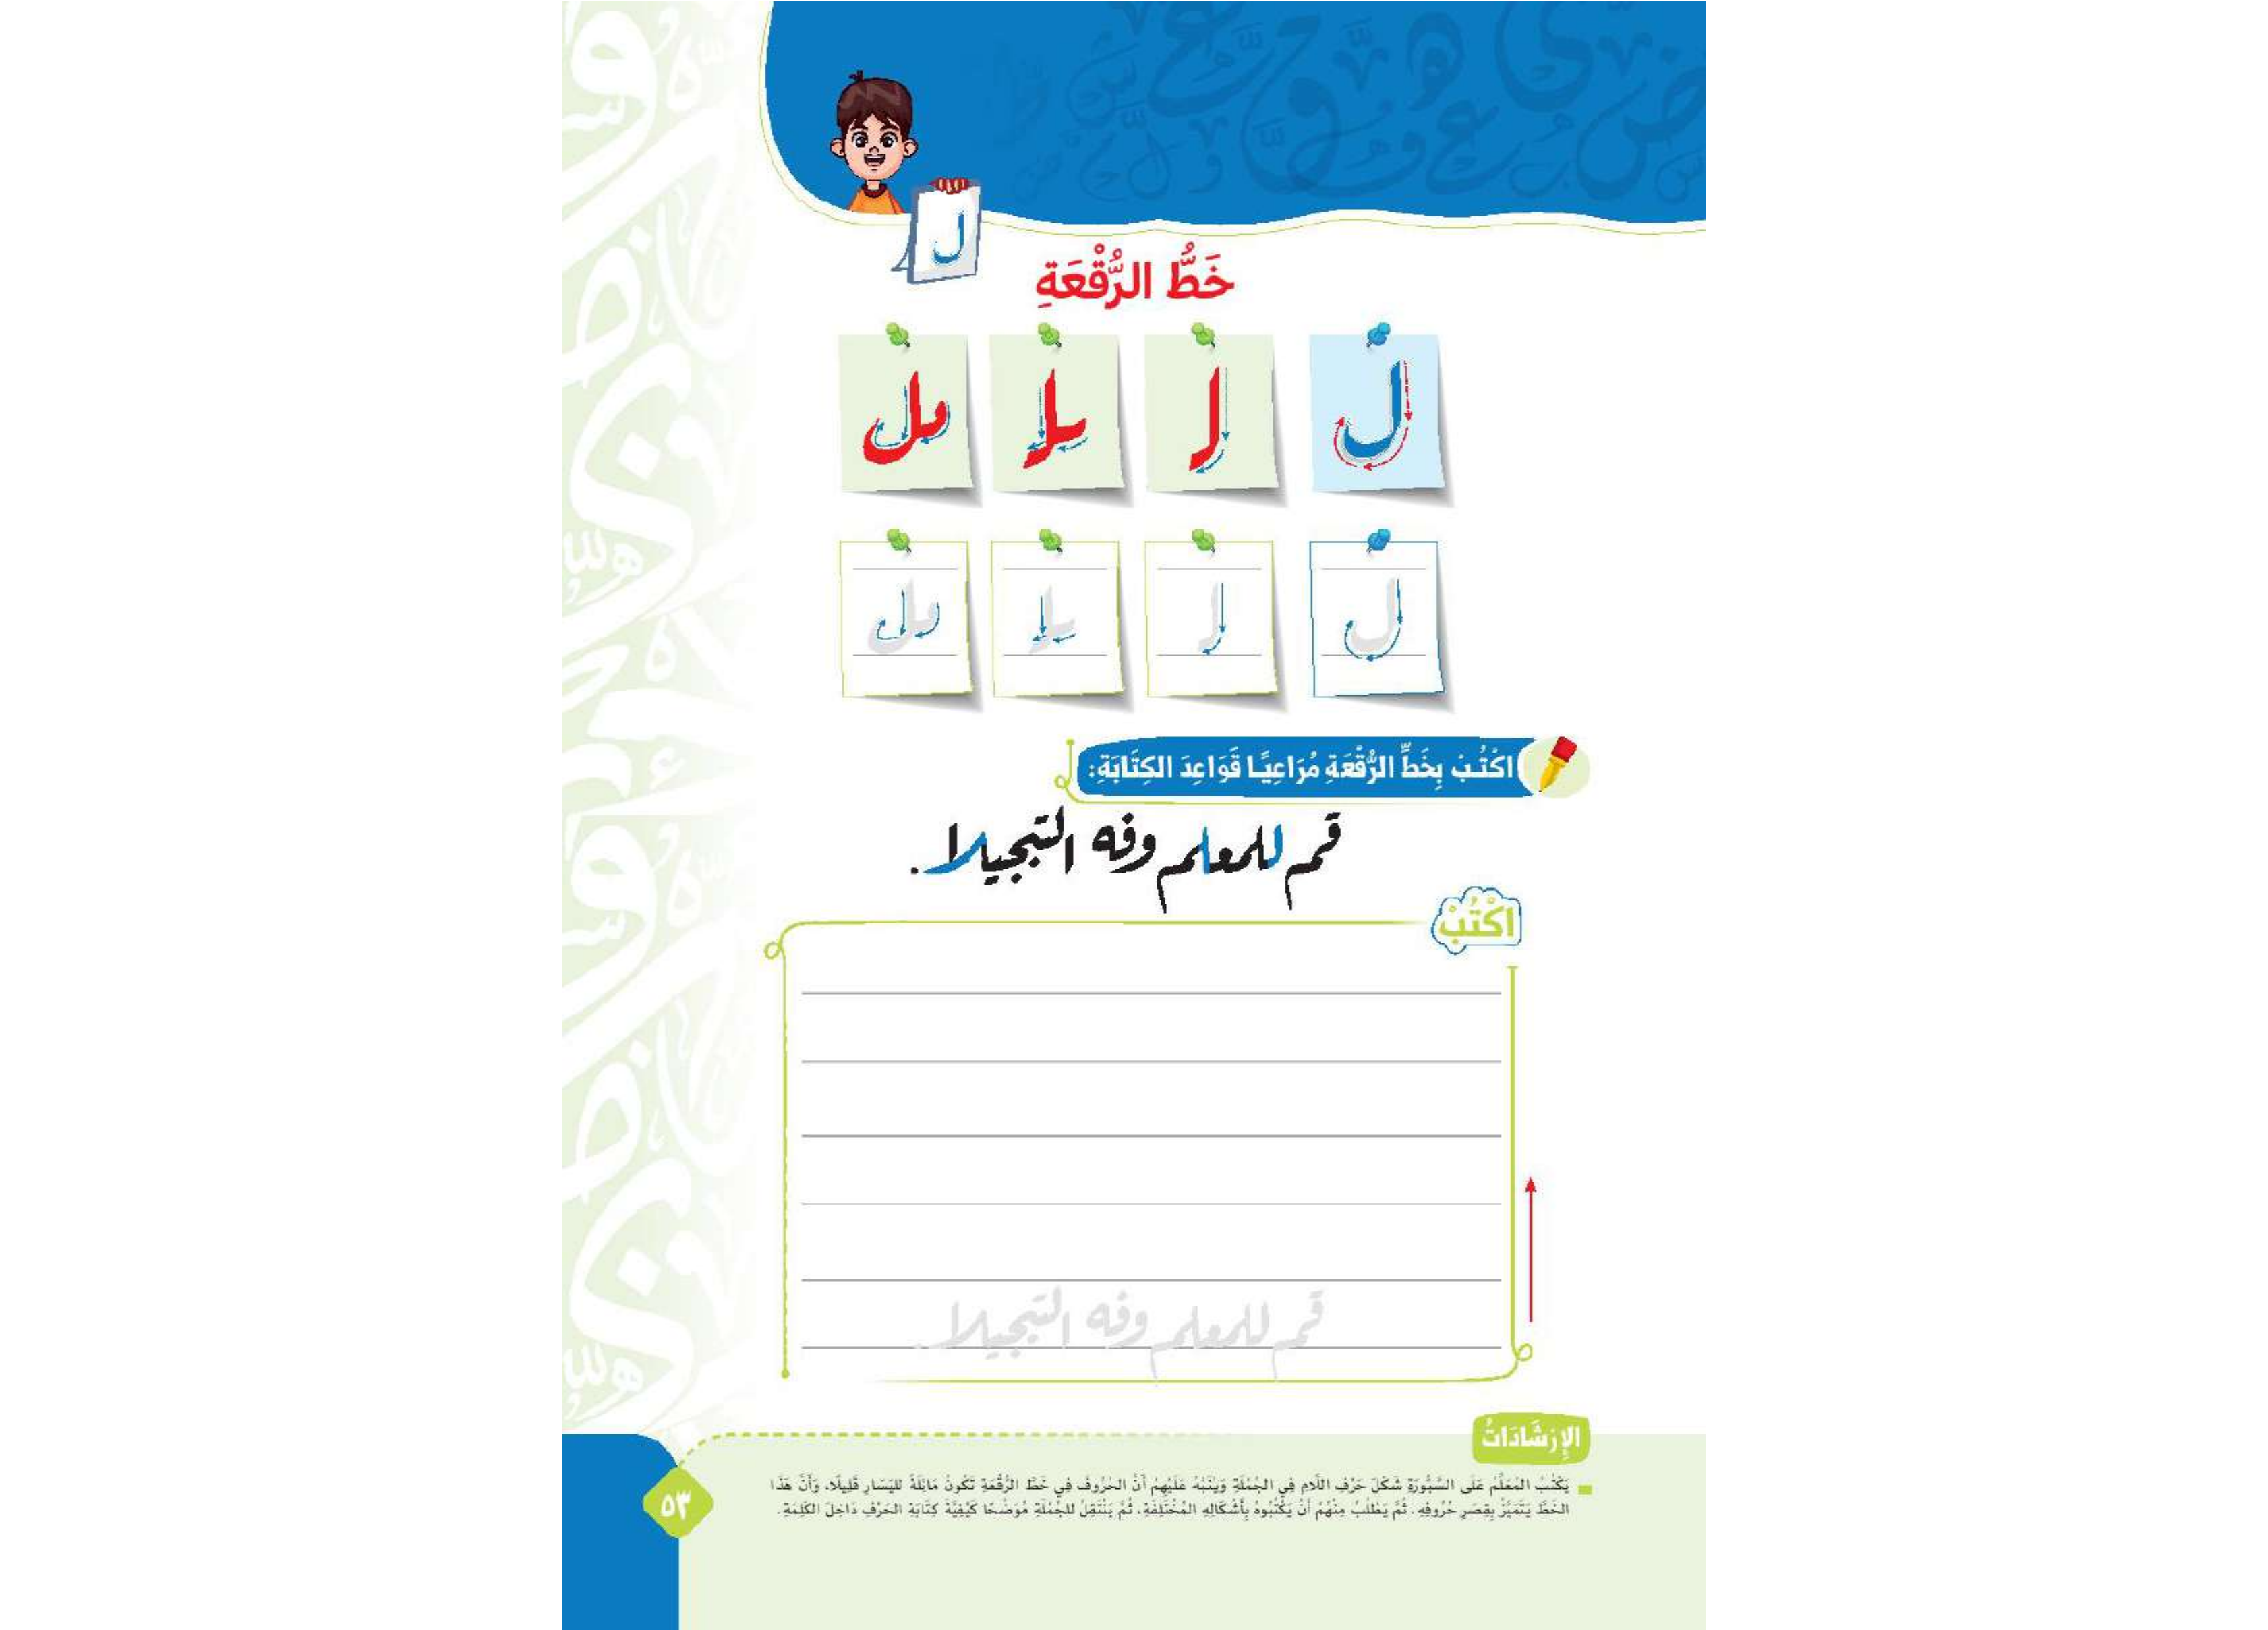 ل
خَطُّ الرُّقْعَةِ
ل لـ ـلـ ـل
ل لـ ـلـ ـل
اكْتُبْ بِخَطِّ الرُّقْعَةِ مُرَاعِيًا قَوَاعِدَ الكِتَابَةِ:
قم للمعلم وفه التبجيلا.
اكْتُبْ
قم للمعلم وفه التبجيلا.
الإِرْشَادَاتُ
يَكْتُبُ المُعَلِّمُ عَلَى السَّبُّورَةِ شَكْلَ حَرْفِ اللَّامِ فِي الجُمْلَةِ وَيُنَبِّهُ عَلَيْهِمْ أَنَّ الحُرُوفَ فِي خَطِّ الرُّقْعَةِ تَكُونُ مَائِلَةً لليَسَارِ قَلِيلًا، وَأَنَّ هَذَا
الخَطَّ يَتَمَيَّزُ بِقِصَرِ حُرُوفِهِ. ثُمَّ يَطْلُبُ مِنْهُمْ أَنْ يَكْتُبُوهُ بِأَشْكَالِهِ المُخْتَلِفَةِ، ثُمَّ يَنْتَقِلُ للجُمْلَةِ مُوَضِّحًا كَيْفِيَّةَ كِتَابَةِ الحَرْفِ دَاخِلَ الكَلِمَةِ.
٥٣